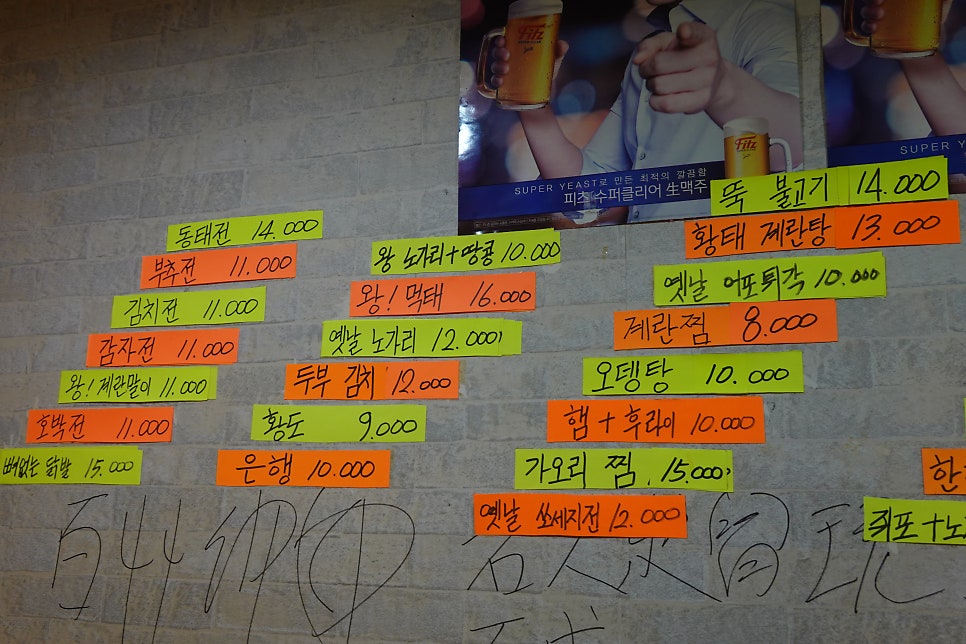 Fitz
SUPER CLEAR
Fitz
SUPER YEAST로 만든 최적의 깔끔함
피츠 수퍼클리어 生맥주
SUPER YE
동태전 14.000
부추전 11.000
김치전 11.000
감자전 11.000
왕! 계란말이 11.000
호박전 11.000
뼈없는 닭발 15.000
왕 노가리+땅콩 10.000
왕! 먹태 16.000
옛날 노가리 12.000
두부 김치 12.000
황도 9.000
은행 10.000
뚝 불고기 14.000
황태 계란탕 13.000
옛날 어포튀각 10.000
계란찜 8.000
오뎅탕 10.000
햄+후라이 10.000
가오리 찜 15.000
옛날 쏘세지전 12.000
한
쥐포+노